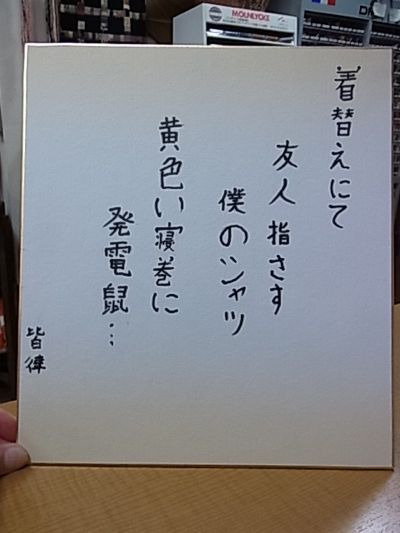 着替えにて
友人指さす
僕のシャツ
黄色い寝巻に
発電鼠…
皆偉
MOLNLYCKE